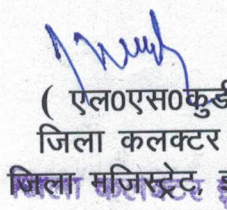 ( एल०एस०कुडी
जिला कलक्टर
जिला मजिस्ट्रेट,